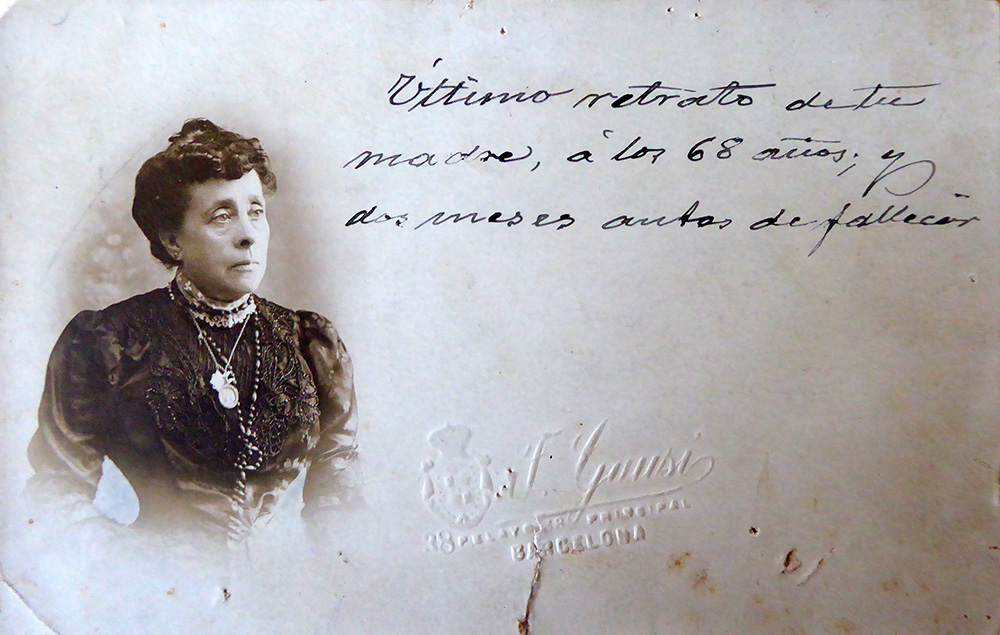 Último retrato de tu
madre, á los 68 años; y
dos meses antes de fallecer
F. Gausi
38 PELAYO 38 PRINCIPAL
BARCELONA